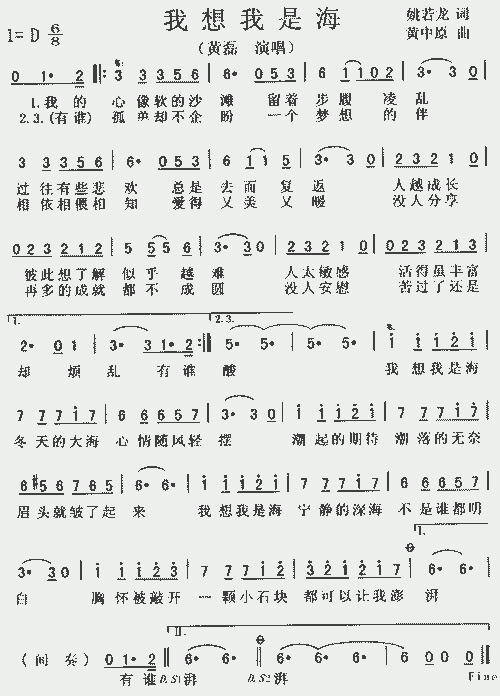 我想我是海
1=D 6/8
姚若龙 词
(黄磊 演唱)
黄中原 曲
0 1· 2 3 3 3 5 6 6· 0 5 3 6 1 1 0 2 3 3 0
1.我的 心像软的沙滩 留着步履凌乱
2.3.(有谁)孤单却不企盼 一个梦想的伴
3 3 3 5 6 6· 0 5 3 6 1 1 5 3· 3 0 2 3 2 1 0
过往有些悲欢 总是去而复返 人越成长
相依相偎相知 爱得又美又暖 没人分享
0 2 3 2 1 2 5 5 5 6 3· 3 0 2 3 2 1 0 0 2 3 2 1 3
彼此想了解似乎越难 人太敏感 活得虽丰富
再多的成就都不成圆 没人安慰 苦过了还是
1. 2.3.
2· 0 1 3· 3 1· 2 5· 5· 5· 5· i i i 2 i
却烦乱 有谁 酸 我想我是海
7 7 7 i 7 6 6 6 5 7 3· 3 0 i i i 2 i 7 7 7 i 7
冬天的大海 心情随风轻摆 潮起的期待 潮落的无奈
6 #5 6 7 6 5 6· 6· i i i 2 i 7 7 7 i 7 6 6 6 5 7
眉头就皱了起来 我想我是海 宁静的深海 不是谁都明
1.
3· 3 0 i i i 2 3 7 7 7 i 2 3 2 i 2 i 7 6· 6·
白 胸怀被敲开 一颗小石块 都可以让我澎湃
II.
(间奏) 0 1· 2 6· 6· 6· 6· 6· 6· 6 0 0 0
有谁 D.S1湃 D.S2湃 Fine